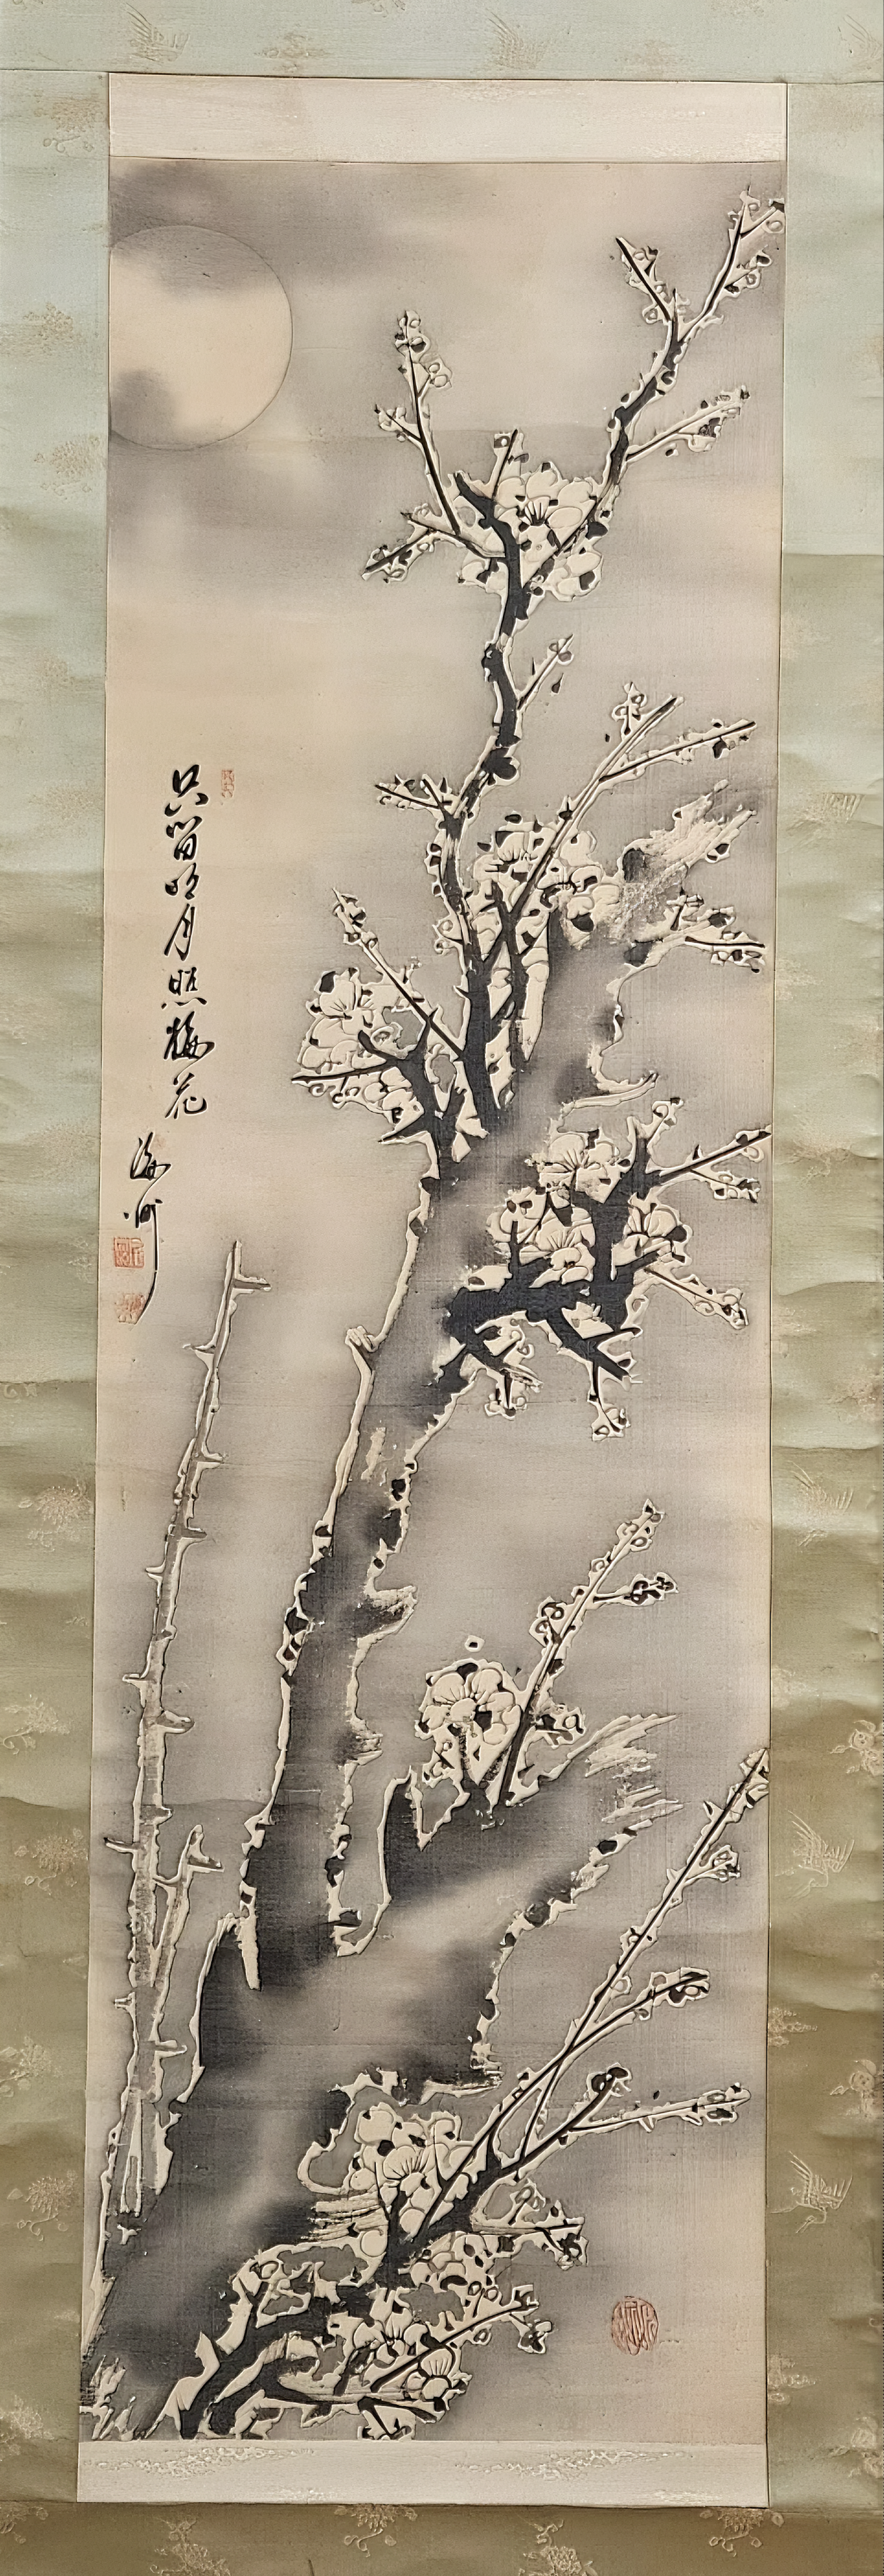 只留明月照梅花
海州